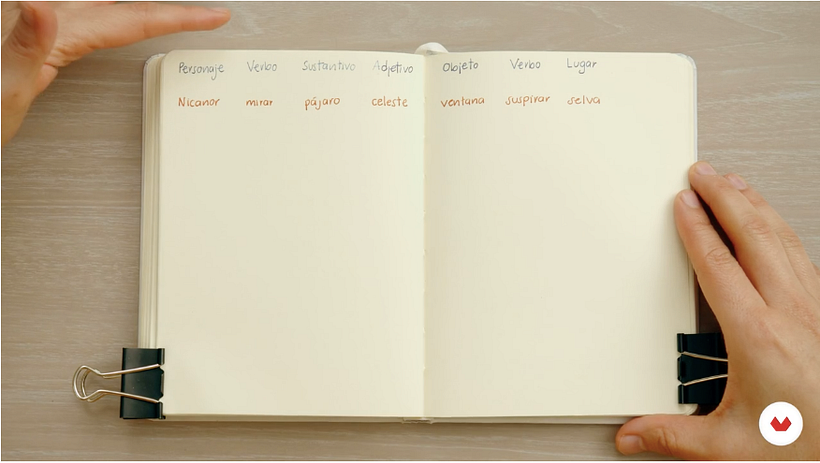 Personaje Verbo Sustantivo Adjetivo Objeto Verbo Lugar
Nicanor mirar pájaro celeste ventana suspirar selva